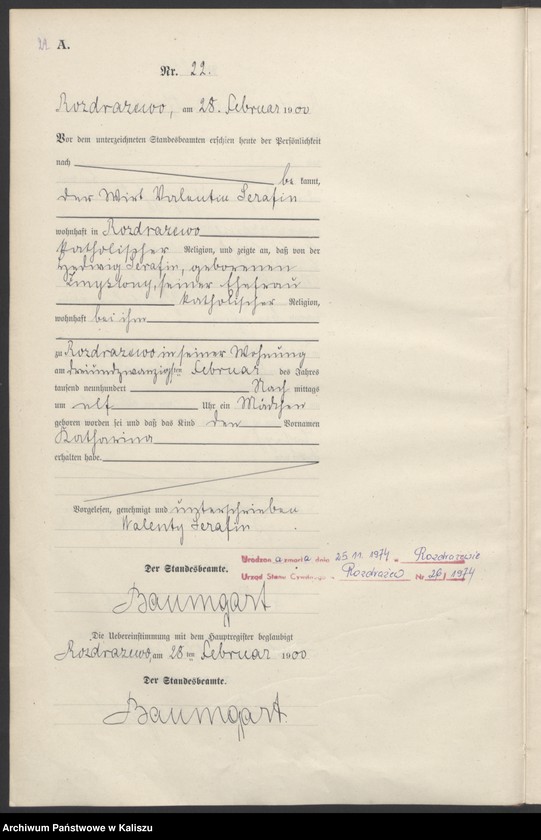 22 A.
Nr. 22.
Rozdrazewo, am 28. Februar 1900
Vor dem unterzeichneten Standesbeamten erschien heute der Persönlichkeit
nach
be kannt,
der Wirt Valentin Serafin
wohnhaft in Rozdrazewo
katholischer Religion, und zeigte an, daß von der
Hedwig Serafin, geborenen
Zmyslony, seiner Ehefrau
katholischer Religion,
wohnhaft bei ihm
zu Rozdrazewo in seiner Wohnung
am dreiundzwanzigsten Februar des Jahres
tausend neunhundert Nach mittags
um elf Uhr ein Mädchen
geboren worden sei und daß das Kind den Vornamen
Katharina
erhalten habe.
Vorgelesen, genehmigt und unterschrieben
Walenty Serafin
Urodzon a zmarła dnia 25.11.1974 w Rozdrażewie
Urząd Stanu Cywilnego w Rozdrażew Nr 26/1974
Der Standesbeamte.
Baumgart
Die Uebereinstimmung mit dem Hauptregister beglaubigt
Rozdrazewo, am 28ten Februar 1900
Der Standesbeamte.
Baumgart.
Archiwum Państwowe w Kaliszu